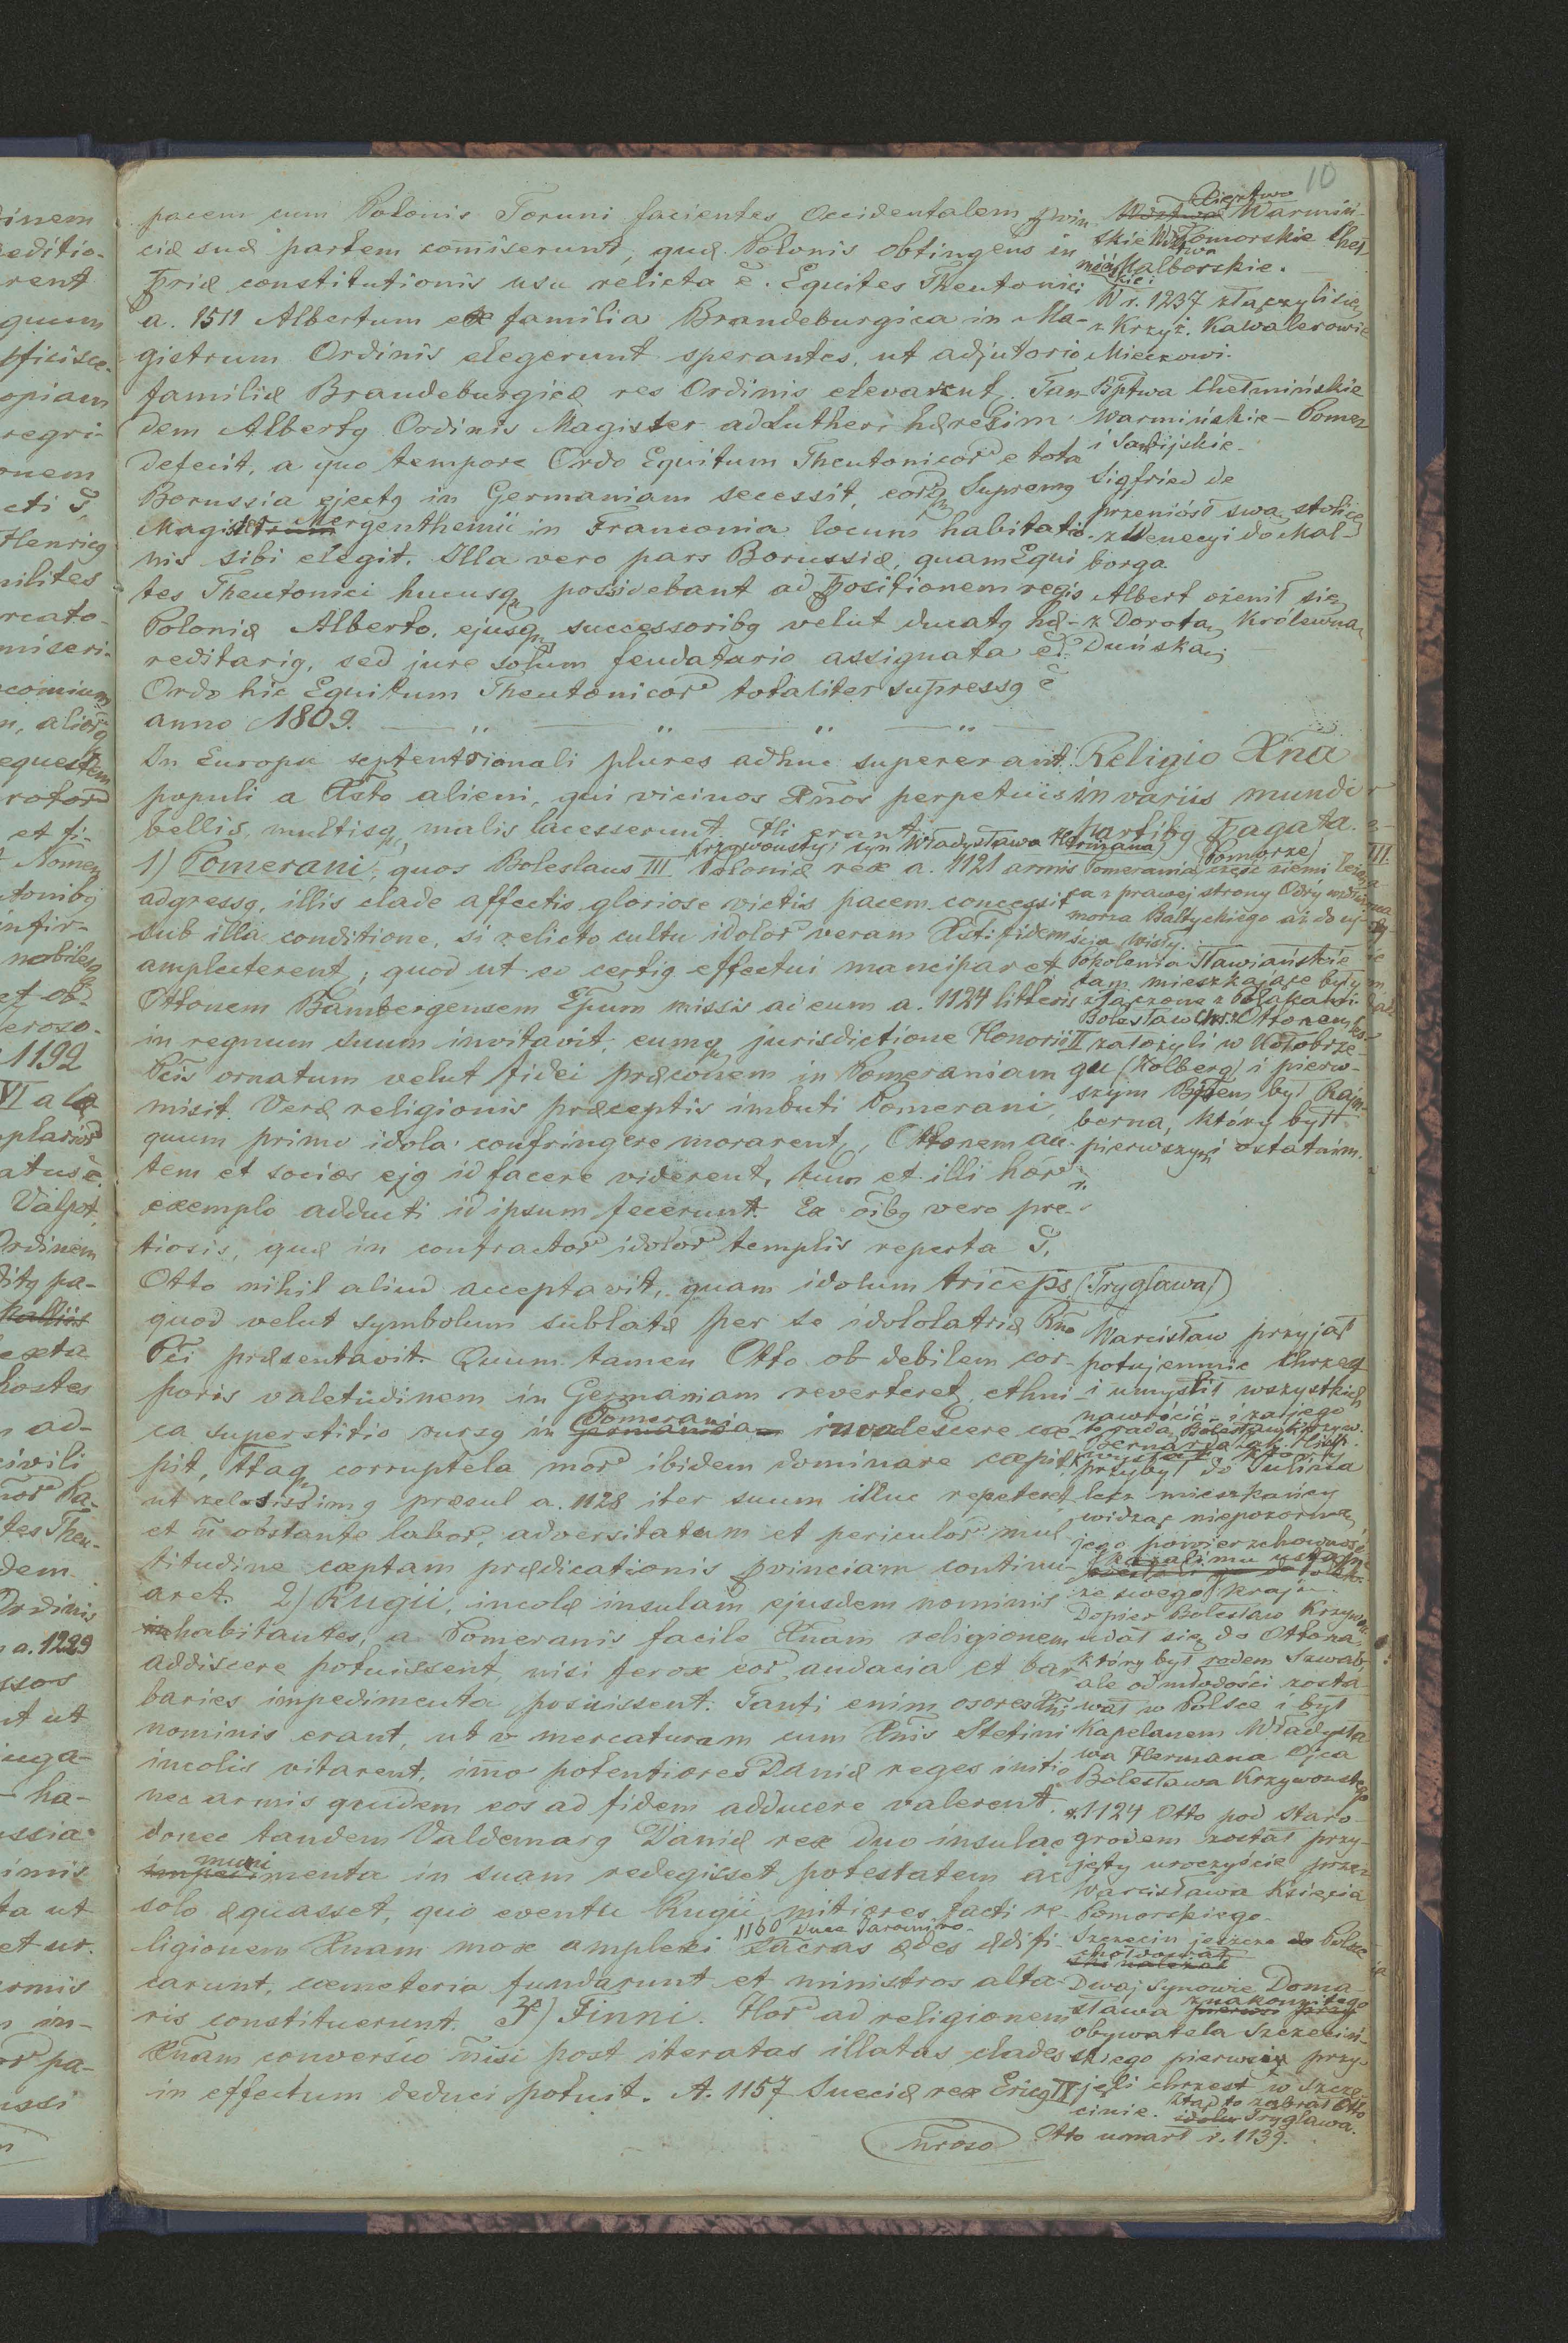 10
pacem cum Polonis Toruni facientes Occidentalem
ciæ suæ partem com̄iserunt, quæ Polonis obtingens in
priæ constitutionis usu relicta ē. Equites Theutonici
a. 1511 Albertum ex familia Brandeburgica in Ma-
gistrum Ordinis elegerunt sperantes, ut adjutorio
familiæ Brandeburgicæ res Ordinis elevarent. Tan-
dem Albertq Ordinis Magister ad Lutheri hæresim
defecit, a quo tempore Ordo Equitum Theutonicor e tota
Borussia ejectq in Germaniam secessit, eorq Supremq
Magister Mergenthemii in Franconia locum habitatio-
nis sibi elegit. Illa vero pars Borussiæ, quam Equi
tes Theutonici hucusq possidebant ad positionem regis
Poloniæ Alberto, ejusq successoribq velut ducatq hæ-
reditariq, sed jure solum feudatario assignata ē.
Ordo hic Equitum Theutonicor totaliter supressq ē
anno 1809.
In Europa septentrionali plures adhuc supererant
populi a Xsto alieni, qui vicinos Xnos perpetuis
bellis, multisq malis lacesserunt. Hi erant
Krzywousty, syn Władysława Hermana
1) Pomerani, quos Boleslaus III Poloniæ rex a. 1121 armis
adgressq, illis clade affectis gloriose victis pacem concessit
sub illa conditione, si relicto cultu idolor veram Xsti fidem
amplecterent, quod ut eo certiq effectui manciparet
Ottonem Bambergensem Epum missis ad eum a. 1124 litteris
in regnum suum invitavit, eumq jurisdictione Honorii II
Pcis ornatum velut fidei præconem in Pomeraniam
misit. Veræ religionis præceptis imbuti Pomerani,
quum primo idola confringere morarent, Ottonem au-
tem et socios ejq id facere viderent, tum et illi hor
exemplo adducti id ipsum fecerunt. Ex oībq vero pre-
tiosis, quæ in contractor idolor templis reperta
Otto nihil aliud acceptavit, quam idolum triceps (Trygława)
quod velut symbolum sublatæ per se idololatriæ Rno
Pci præsentavit. Quum tamen Otto ob debilem cor-
poris valetudinem in Germaniam reverteret, ethni-
ca superstitio rursq in Pomerania invalescere cœ-
pit, Itaq corruptela mor ibidem dominare cœpit
ut zelosissimq præsul a. 1128 iter suum illuc repeteret
et n̄ obstante labor, adversitatum et periculor mul
titudine cœptam prædicationis provinciam continu-
aret. 2) Rugii, incolæ insulam ejusdem nominis
inhabitantes, a Pomeranis facile Xnam religionem
addiscere potuissent, nisi ferox eor audacia et bar-
baries impedimenta posuissent. Tanti enim osores Xni
nominis erant, ut v mercaturam cum Xnis Stetini
incolis vitarent, imo potentiores Daniæ reges initio
nec armis quidem eos ad fidem adducere valerent.
donec tandem Valdemarq Daniæ rex duo insulae
munimenta in suam redegisset potestatem ac
solo æquasset, quo eventu Rugii mitiores facti re-
1160 Duce Jaromiro
ligionem Xnam mox amplexi sacras ædes ædifi-
carunt, cœmeteria fundarunt et ministros alta-
ris constituerunt. 3) Finni. Hor ad religionem
Xnam conversio n̄isi post iteratas illatas clades
in effectum deduci potuit. A. 1157 Sueciæ rex Ericq IX
Warmiń-
skie Pomorskie Cheł-
mińskie i Malborskie.
W r. 1237 złączyli się
z Krzyż. Kawalerowie
Mieczowi.
Bptwa Chełmińskie
Warmińskie – Pomez
i Sambijskie.
Sigfried de
przeniósł swą stolicę
z Wenecyi do Mal-
borga
Albert ożenił się
z Dorotą, Królewną
Duńską
Religio Xna
in variis mundi
partibq ppagata.
III.
(Pomorze)
Pomerania, część ziemi leżą-
ca z prawej strony Odry wzdłuż
morza Baltyckiego aż do uj-
ścia Wisły.
Pokolenia Sławiańskie
tam mieszkające były
złączone z Polakami.
Bolesław z Ottonem
założyli w Kołobrze-
gu (Kolberg) i pierw-
szym Bpem był Rajn-
berna, który był
pierwszym i ostatnim.
Warcisław przyjął
potajemnie Chrzest
i umyślił wszystkich
nawrócić i za jego
radą Bolesław Krzyw.
przybył do Julina
lecz mieszkańcy
widząc niepozorną
jego powierzchowność
kazali mu ustąpić
ze swego kraju.
Dopier Bolesław Krzyw.
udał się do Ottona,
który był rodem Szwab,
ale od młodości zosta
wał w Polsce i był
Kapelanem Władysła
wa Hermana Ojca
Bolesława Krzywoustego
r. 1124 Otto pod Staro-
grodem został przy-
jęty uroczyście przez
Warcisława Księcia
Pomorskiego.
Szczecin jeszcze Polsce
hołdował
Dwaj synowie Doma-
sława znakomitego
obywatela Szczeciń-
skiego pierwsi przy-
jęli chrzest w Szcze-
cinie. Ztąd to zabrał Otto
Trygława.
Otto umarł r. 1139.